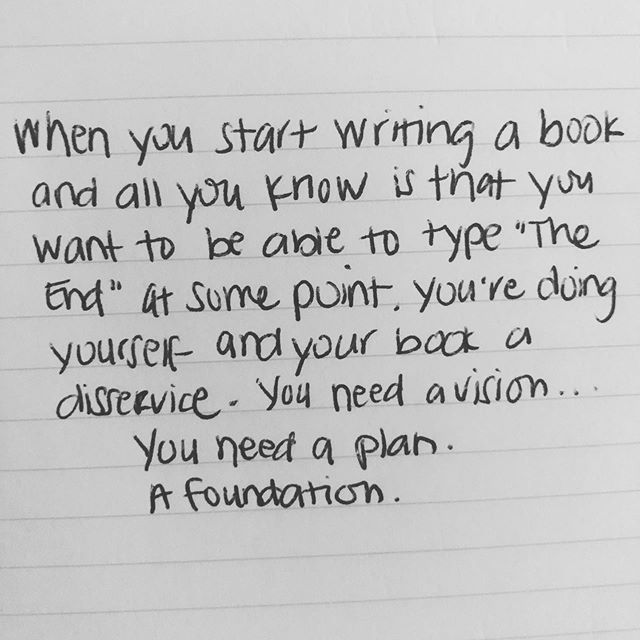 When you start writing a book
and all you know is that you
want to be able to type "The
End" at some point. you're doing
yourself and your book a
disservice. You need a vision...
You need a plan.
A foundation.